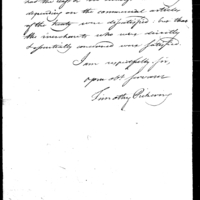 depending on the commercial article
of the treaty were dissatisfied: but that
the merchants who were directly
& potentially concerned were satisfied.
I am respectfully, sir,
your obt. servant
Timothy Pickering